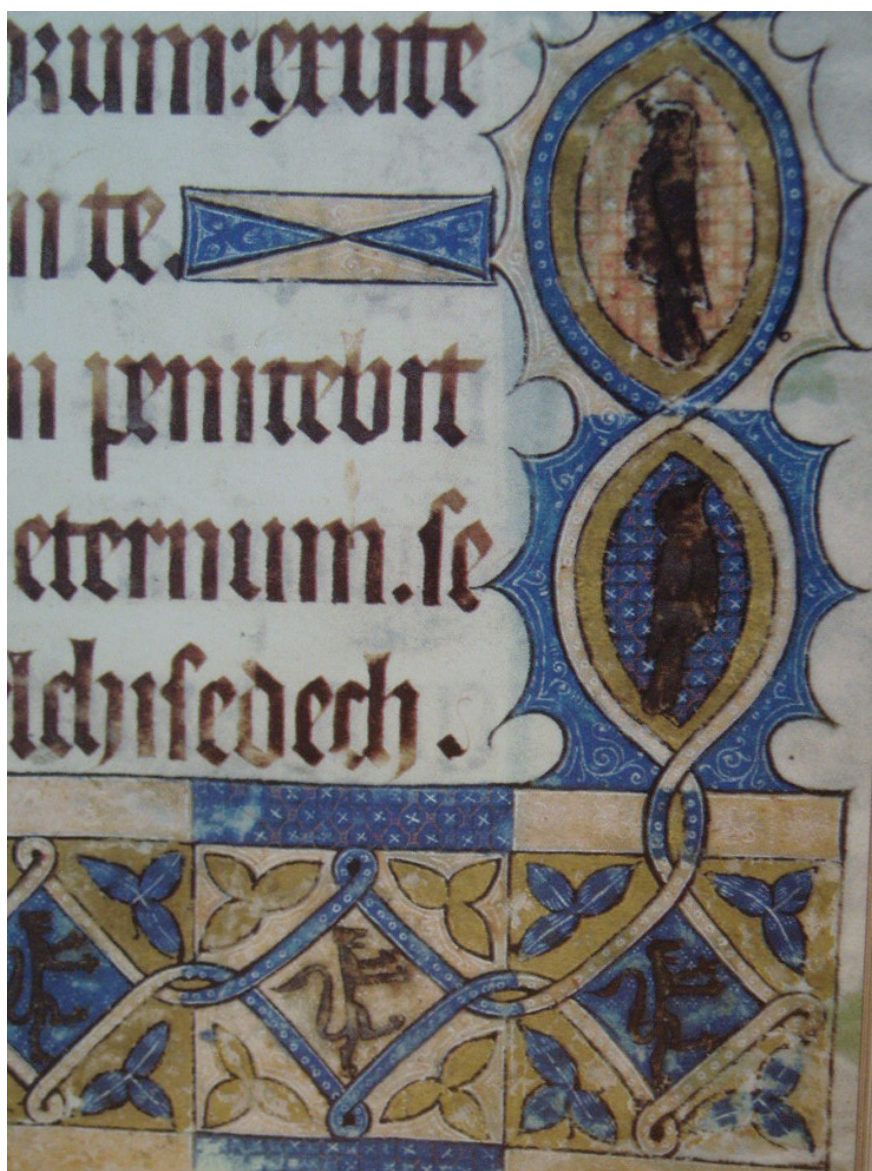 ꝛum:exute
ui te.
n penitebit
eternum.ſe
lchiſedech.